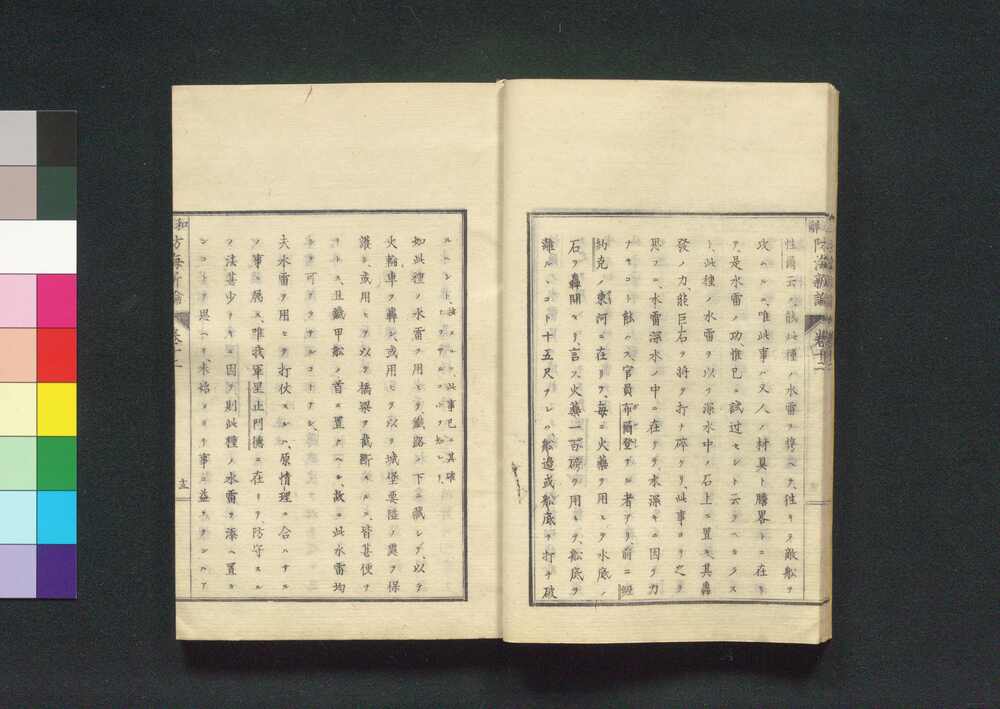 性爾云フ、能此種ノ水雷ヲ將ヘテ、往キテ敵船ヲ
攻ヘルハ、唯此事ハ又人ノ材具ト膽畧トニ在リ
テ、是水雷ノ功、惟已ニ試過セシト云フヘカラス
ト、此種ノ水雷ヲ以リ深水中ノ石上ニ置キ其轟
發ノ力、能巨石ヲ將テ打チ碎クリ、此事ヨリ之ヲ
思フニ、水雷深水ノ中ニ在リテ、水深キニ因リ力
ナキコト能ハス、官員布爾登ナル者アリ、前ニ紐
約克ノ東河ニ在リテ、毎ニ火藥ヲ用ヒテ水底ノ
石ヲ轟開セリ、言フ、火藥一百磅ヲ用ヒテ、船底ヲ
離ルヽコト十五尺ナレハ、船邉或船底ヲ打チ破
ルヘシト、此事已ニ其確
如此種ノ水雷ヲ用ヒテ、鐵路ノ下ニ藏シテ、以テ
火輪車ヲ轟シ、或用ヒテ以テ城堡要隘ノ異ヲ保
護シ、或用ヒテ以テ橋梁ヲ截斷スルニ、皆甚便ヲ
ナス、且鐵甲船ノ首ニ置クヘシ、故ニ此水雷均
シク可ナラサルコトナシ、
夫水雷ヲ用ヒテ打仗スルハ、原情理ニ合ハサル
ノ事ニ屬ス、唯我軍星止門德ニ在リテ、防守スル
ノ法甚少ナキニ因テ、則此種ノ水雷ヲ添ヘ置カ
ンコトヲ思ヘリ、未始メヨリ事ニ益ナクンハア